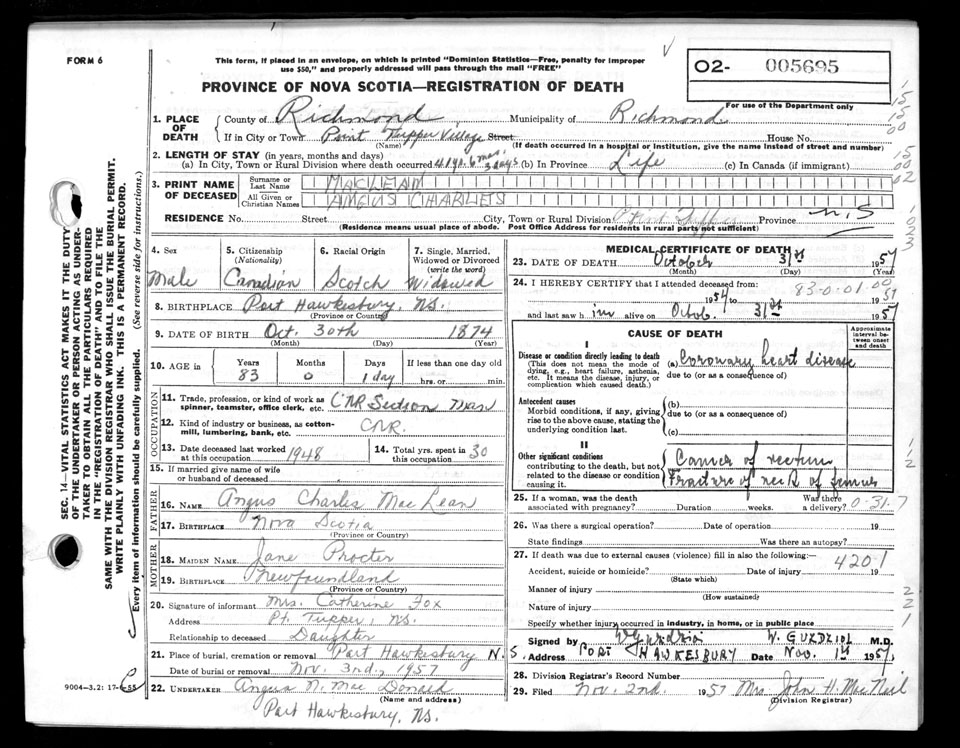 FORM 6
This form, if placed in an envelope, on which is printed "Dominion Statistics—Free, penalty for improper
use $50," and properly addressed will pass through the mail "FREE"
PROVINCE OF NOVA SCOTIA—REGISTRATION OF DEATH
02- 005695
For use of the Department only
1. PLACE OF DEATH
County of Richmond Municipality of Richmond
If in City or Town Point Tupper Village Street House No.
(Name) (If death occurred in a hospital or institution, give the name instead of street and number)
2. LENGTH OF STAY (in years, months and days)
(a) In City, Town or Rural Division where death occurred 41 yr. 6 mos. 3 days (b) In Province Life (c) In Canada (if immigrant)
3. PRINT NAME OF DECEASED
Surname or Last Name MACLEAN
All Given or Christian Names ANGUS CHARLES
RESIDENCE No. Street City, Town or Rural Division Point Tupper Province N.S
(Residence means usual place of abode. Post Office Address for residents in rural parts not sufficient)
4. Sex Male
5. Citizenship (Nationality) Canadian
6. Racial Origin Scotch
7. Single, Married, Widowed or Divorced (write the word) Widowed
8. BIRTHPLACE Port Hawkesbury, N.S.
(Province or Country)
9. DATE OF BIRTH Oct. 30th 1874
(Month) (Day) (Year)
10. AGE in Years 83 Months 0 Days 1 day If less than one day hrs. or min.
OCCUPATION
11. Trade, profession, or kind of work as spinner, teamster, office clerk, etc. CNR Section Man
12. Kind of industry or business, as cotton-mill, lumbering, bank, etc. CNR.
13. Date deceased last worked at this occupation 1948
14. Total yrs. spent in this occupation 30
15. If married give name of wife or husband of deceased
FATHER
16. NAME Angus Charles Mac Lean
17. BIRTHPLACE Nova Scotia
(Province or Country)
MOTHER
18. MAIDEN NAME Jane Procter
19. BIRTHPLACE Newfoundland
(Province or Country)
20. Signature of informant Mrs. Catherine Fox
Address Pt. Tupper, N.S.
Relationship to deceased Daughter
21. Place of burial, cremation or removal Port Hawkesbury N.S.
Date of burial or removal Nov. 3rd, 1957
22. UNDERTAKER Angus N. Mac Donald
(Name and address)
Port Hawkesbury, N.S.
9004-3.2: 17-6-55
MEDICAL CERTIFICATE OF DEATH
23. DATE OF DEATH October 31st 1957
(Month) (Day) (Year)
24. I HEREBY CERTIFY that I attended deceased from:
83-0-01-00
1954 to 1957
and last saw him alive on Octob. 31st 1957
CAUSE OF DEATH
Approximate interval between onset and death
I
Disease or condition directly leading to death
(This does not mean the mode of dying, e.g., heart failure, asthenia, etc. It means the disease, injury, or complication which caused death.)
(a) Coronary heart disease
due to (or as a consequence of)
Antecedent causes
Morbid conditions, if any, giving rise to the above cause, stating the underlying condition last.
(b)
due to (or as a consequence of)
(c)
II
Other significant conditions
contributing to the death, but not related to the disease or condition causing it.
Cancer of rectum
Fracture of neck of femur
25. If a woman, was the death associated with pregnancy? Duration weeks. Was there a delivery? 0-31-7
26. Was there a surgical operation? Date of operation 19
State findings Was there an autopsy?
27. If death was due to external causes (violence) fill in also the following:—
4201
Accident, suicide or homicide? Date of injury 19
(State which)
Manner of injury
(How sustained)
Nature of injury
Specify whether injury occurred in industry, in home, or in public place
Signed by W Gurdziol W. GURDZIOL M.D.
Address PORT HAWKESBURY Date Nov. 1st 1957.
28. Division Registrar's Record Number
29. Filed Nov. 2nd. 1957 Mrs. John H. MacNeil
(Division Registrar)
SEC. 14—VITAL STATISTICS ACT MAKES IT THE DUTY
OF THE UNDERTAKER OR PERSON ACTING AS UNDER-
TAKER TO OBTAIN ALL THE PARTICULARS REQUIRED
IN THE "REGISTRATION OF DEATH" AND TO FILE THE
SAME WITH THE DIVISION REGISTRAR WHO SHALL ISSUE THE BURIAL PERMIT.
WRITE PLAINLY WITH UNFADING INK. THIS IS A PERMANENT RECORD.
Every item of information should be carefully supplied. (See reverse side for instructions.)